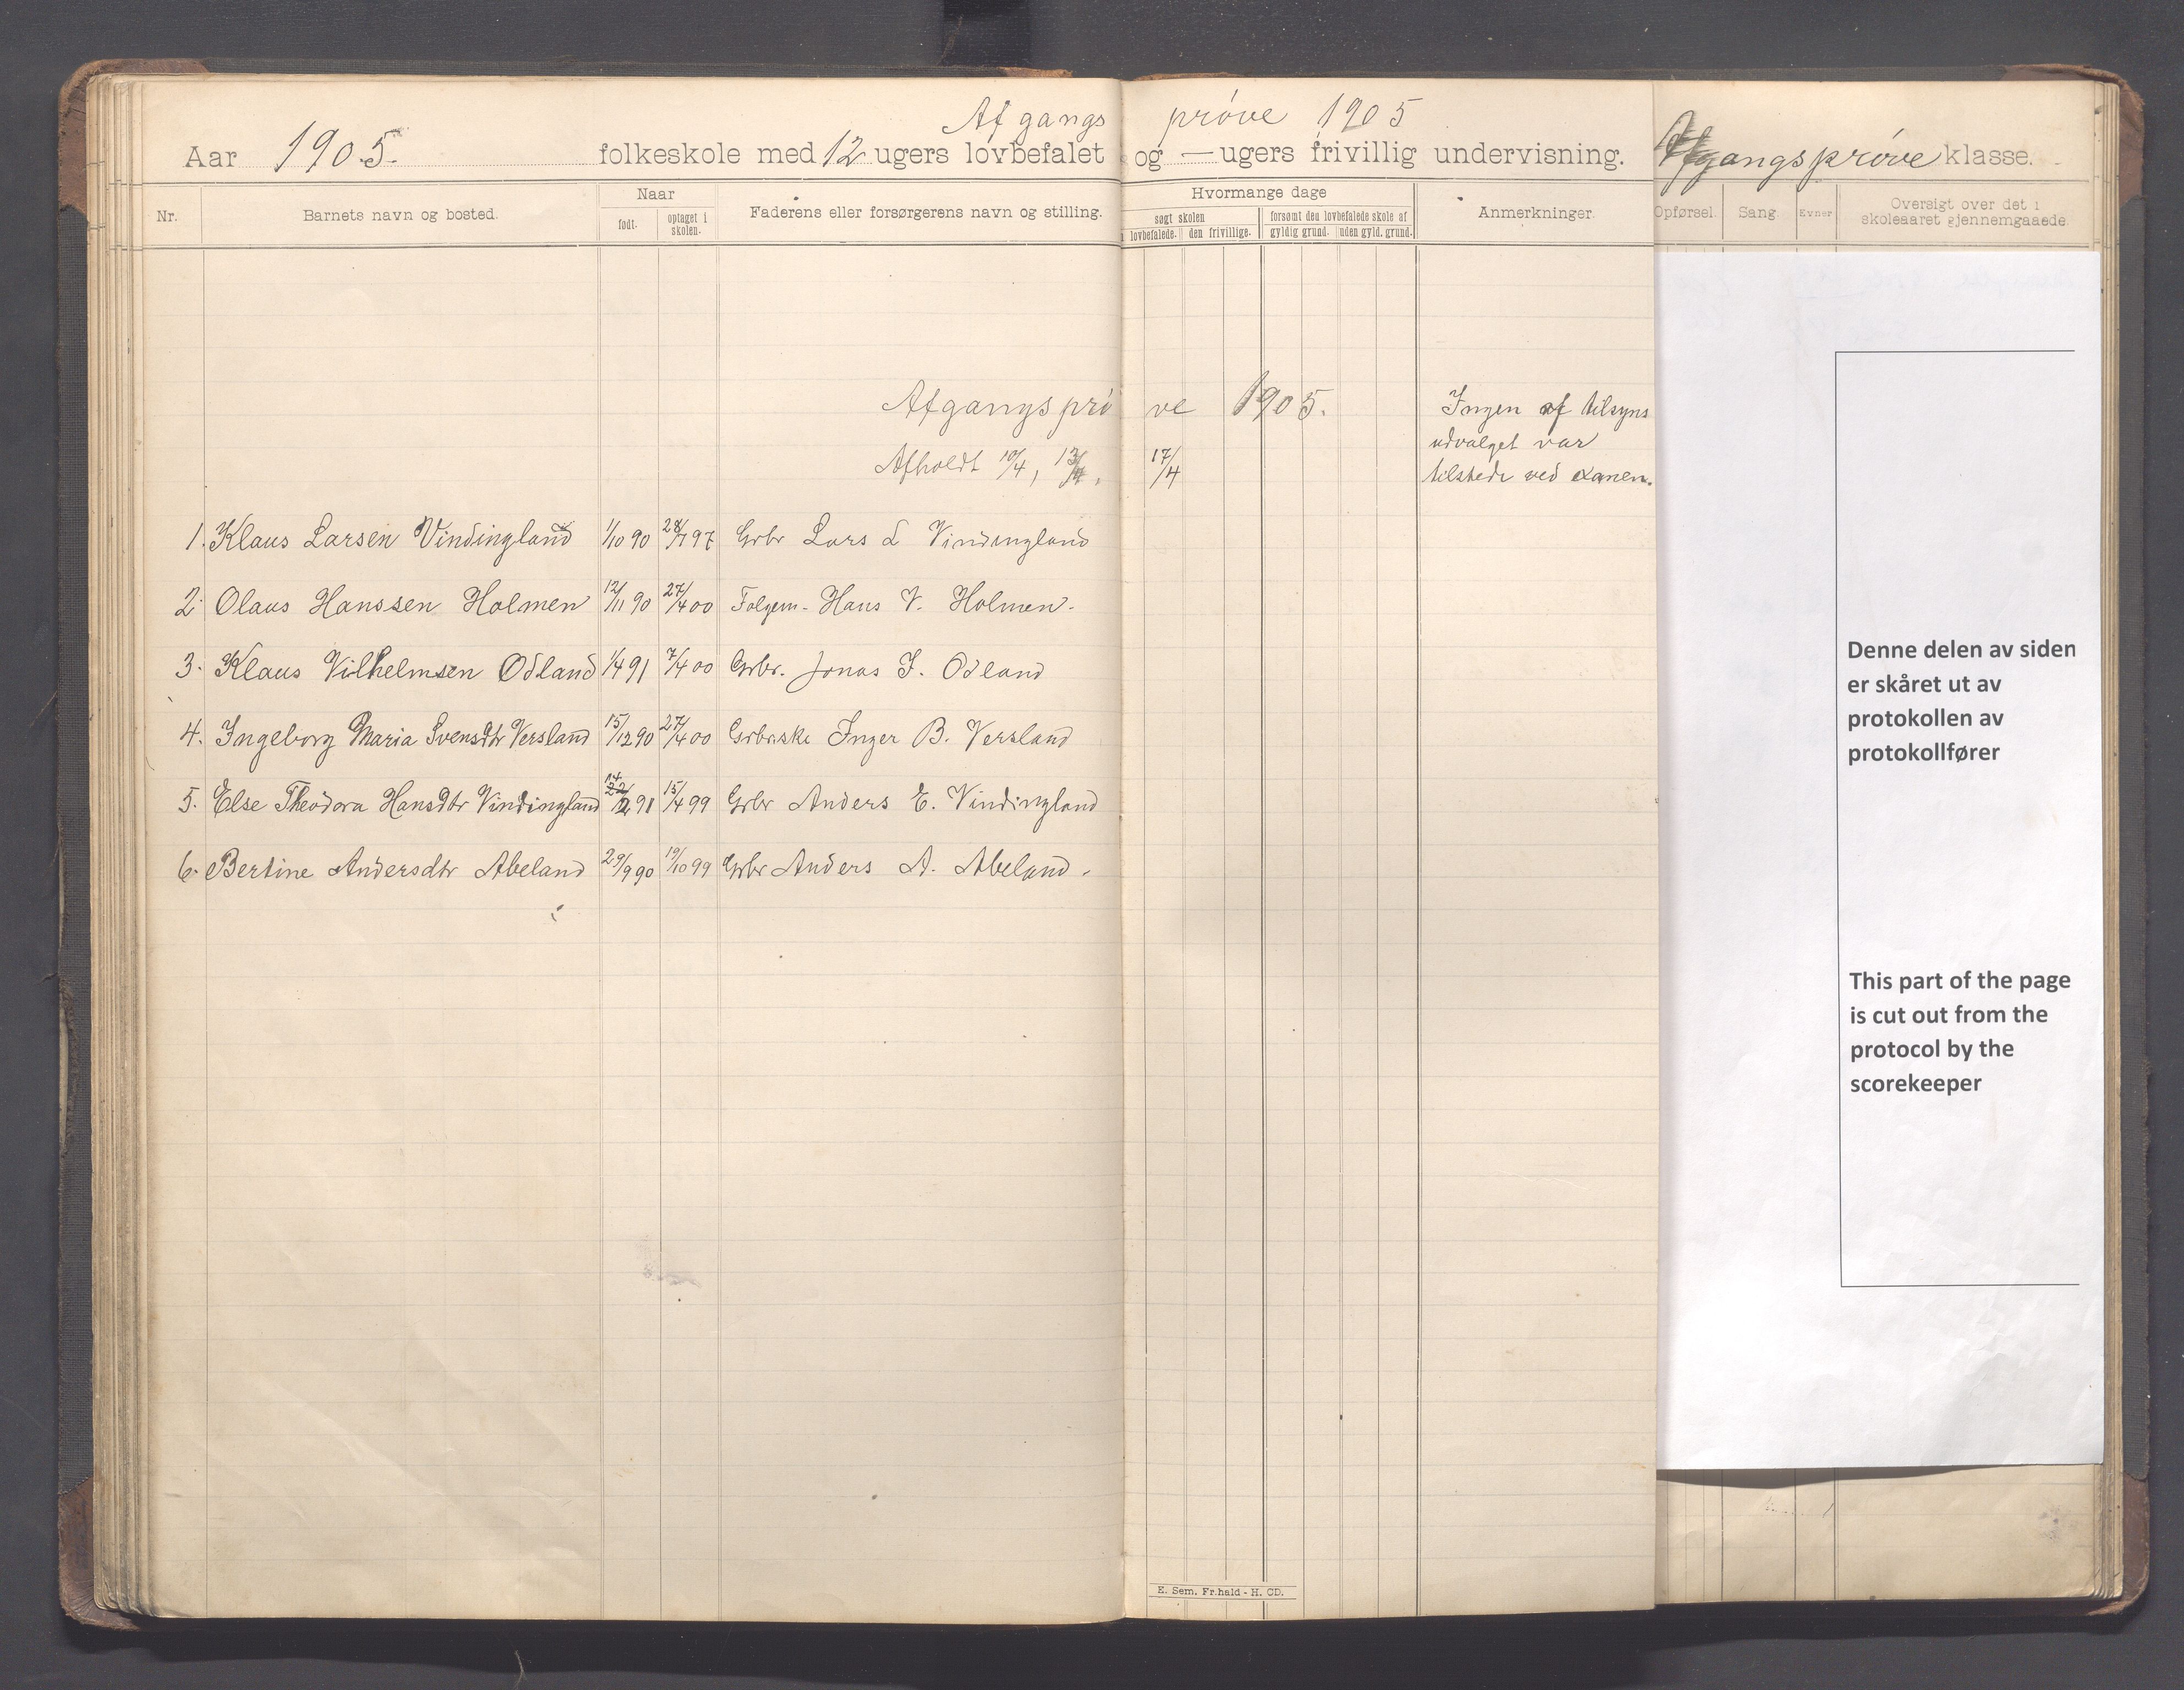 Afgangsprøve 1905
Aar 1905. folkeskole med 12 ugers lovbefalet og — ugers frivillig undervisning. Afgangsprøve klasse.
Nr. Barnets navn og bosted. Naar født. optaget i skolen. Faderens eller forsørgerens navn og stilling. Hvormange dage søgt skolen lovbefalede. den frivillige. forsømt den lovbefalede skole af gyldig grund. uden gyld. grund. Anmerkninger. Opførsel. Sang. Evner Oversigt over det i skoleaaret gjennemgaaede.
Afgangsprøve 1905. Ingen af tilsyns
udvalget var
Afholdt 10/4, 13/4, 17/4 tilstede ved examen.
1. Klaus Larsen Vindingland 1/10 90 28/7 97 Grbr Lars L Vindingland
2. Olaus Hanssen Holmen 12/11 90 27/4 00 Folgem. Hans V. Holmen.
3. Klaus Vilhelmsen Odland 1/4 91 7/4 00 Grbr. Jonas J. Odland
4. Ingeborg Maria Svensdtr Versland 15/12 90 27/4 00 Grbrske Inger B. Versland
5. Else Theodora Hansdtr Vindingland 91 15/4 99 Grbr Anders E. Vindingland
6. Bertine Andersdtr Abeland 29/9 90 19/10 99 Grbr Anders A. Abeland.
Denne delen av siden
er skåret ut av
protokollen av
protokollfører
This part of the page
is cut out from the
protocol by the
scorekeeper
E. Sem. Fr.hald - H. CD.